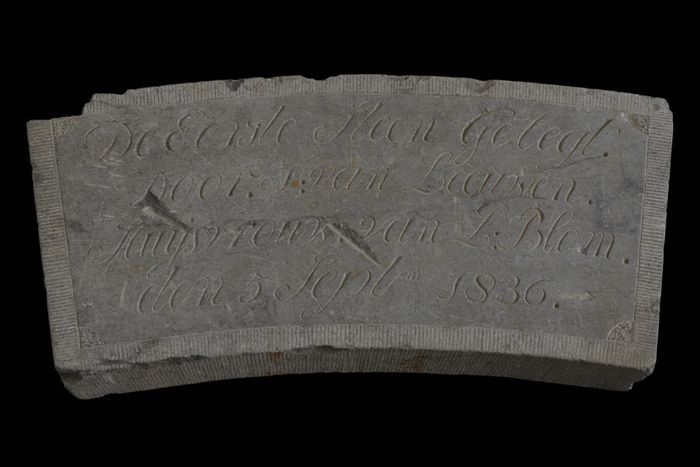 De Eerste Steen Gelegt.
Door. J: van Leauwen
Huijsvrouw. van L: Blom.
den 5 Septbm 1836.